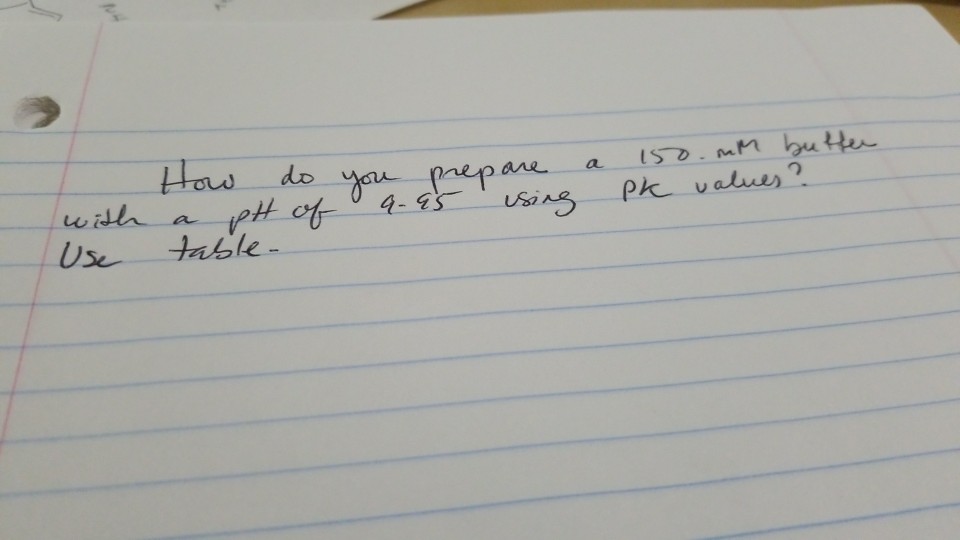 How do you prepare a 150.mM buffer
with a pH of 9.95 using pK values?
Use table.